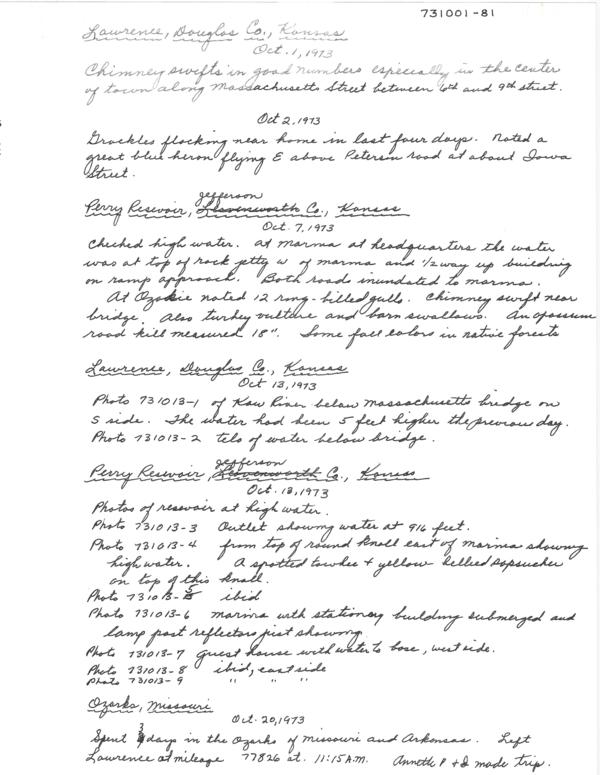 731001-81
Lawrence, Douglas Co., Kansas
Oct. 1, 1973
Chimney swifts in good numbers especially in the center
of town along Massachusetts Street between 6th and 9th street.
Oct 2, 1973
Grackles flocking near home in last four days. Noted a
great blue heron flying E above Peterson road at about Iowa
Street.
Jefferson
Perry Resevoir, Leavenworth Co., Kansas
Oct. 7, 1973
Checked high water. At marina at headquarters the water
was at top of rock jetty W of marina and 1/2 way up building
on ramp approach. Both roads inundated to marina.
At Ozakie noted 12 ring-billed gulls. Chimney swift near
bridge. Also turkey vulture and barn swallows. An opossum
road kill measured 18". Some fall colors in native forests
Lawrence, Douglas Co., Kansas
Oct 13, 1973
Photo 731013-1 of Kaw River below Massachusetts bridge on
S side. The water had been 5 feet higher the previous day.
Photo 731013-2 tels of water below bridge.
Jefferson
Perry Resevoir, Leavenworth Co., Kansas
Oct. 13, 1973
Photos of resevoir at high water.
Photo 731013-3 Outlet showing water at 916 feet.
Photo 731013-4 from top of round knoll east of marina showing
high water. A spotted towhee + yellow bellied sapsucker
on top of this knoll.
Photo 731013-5 ibid
Photo 731013-6 marina with stationery building submerged and
lamp post reflectors just showing
Photo 731013-7 guest house with water to base, west side.
Photo 731013-8 ibid, east side
Photo 731013-9 " " "
Ozarks, Missouri
Oct. 20, 1973
Spent 3 days in the Ozarks of Missouri and Arkansas. Left
Lawrence at mileage 77826 at 11:15 A.M. Annette P + I made trip.